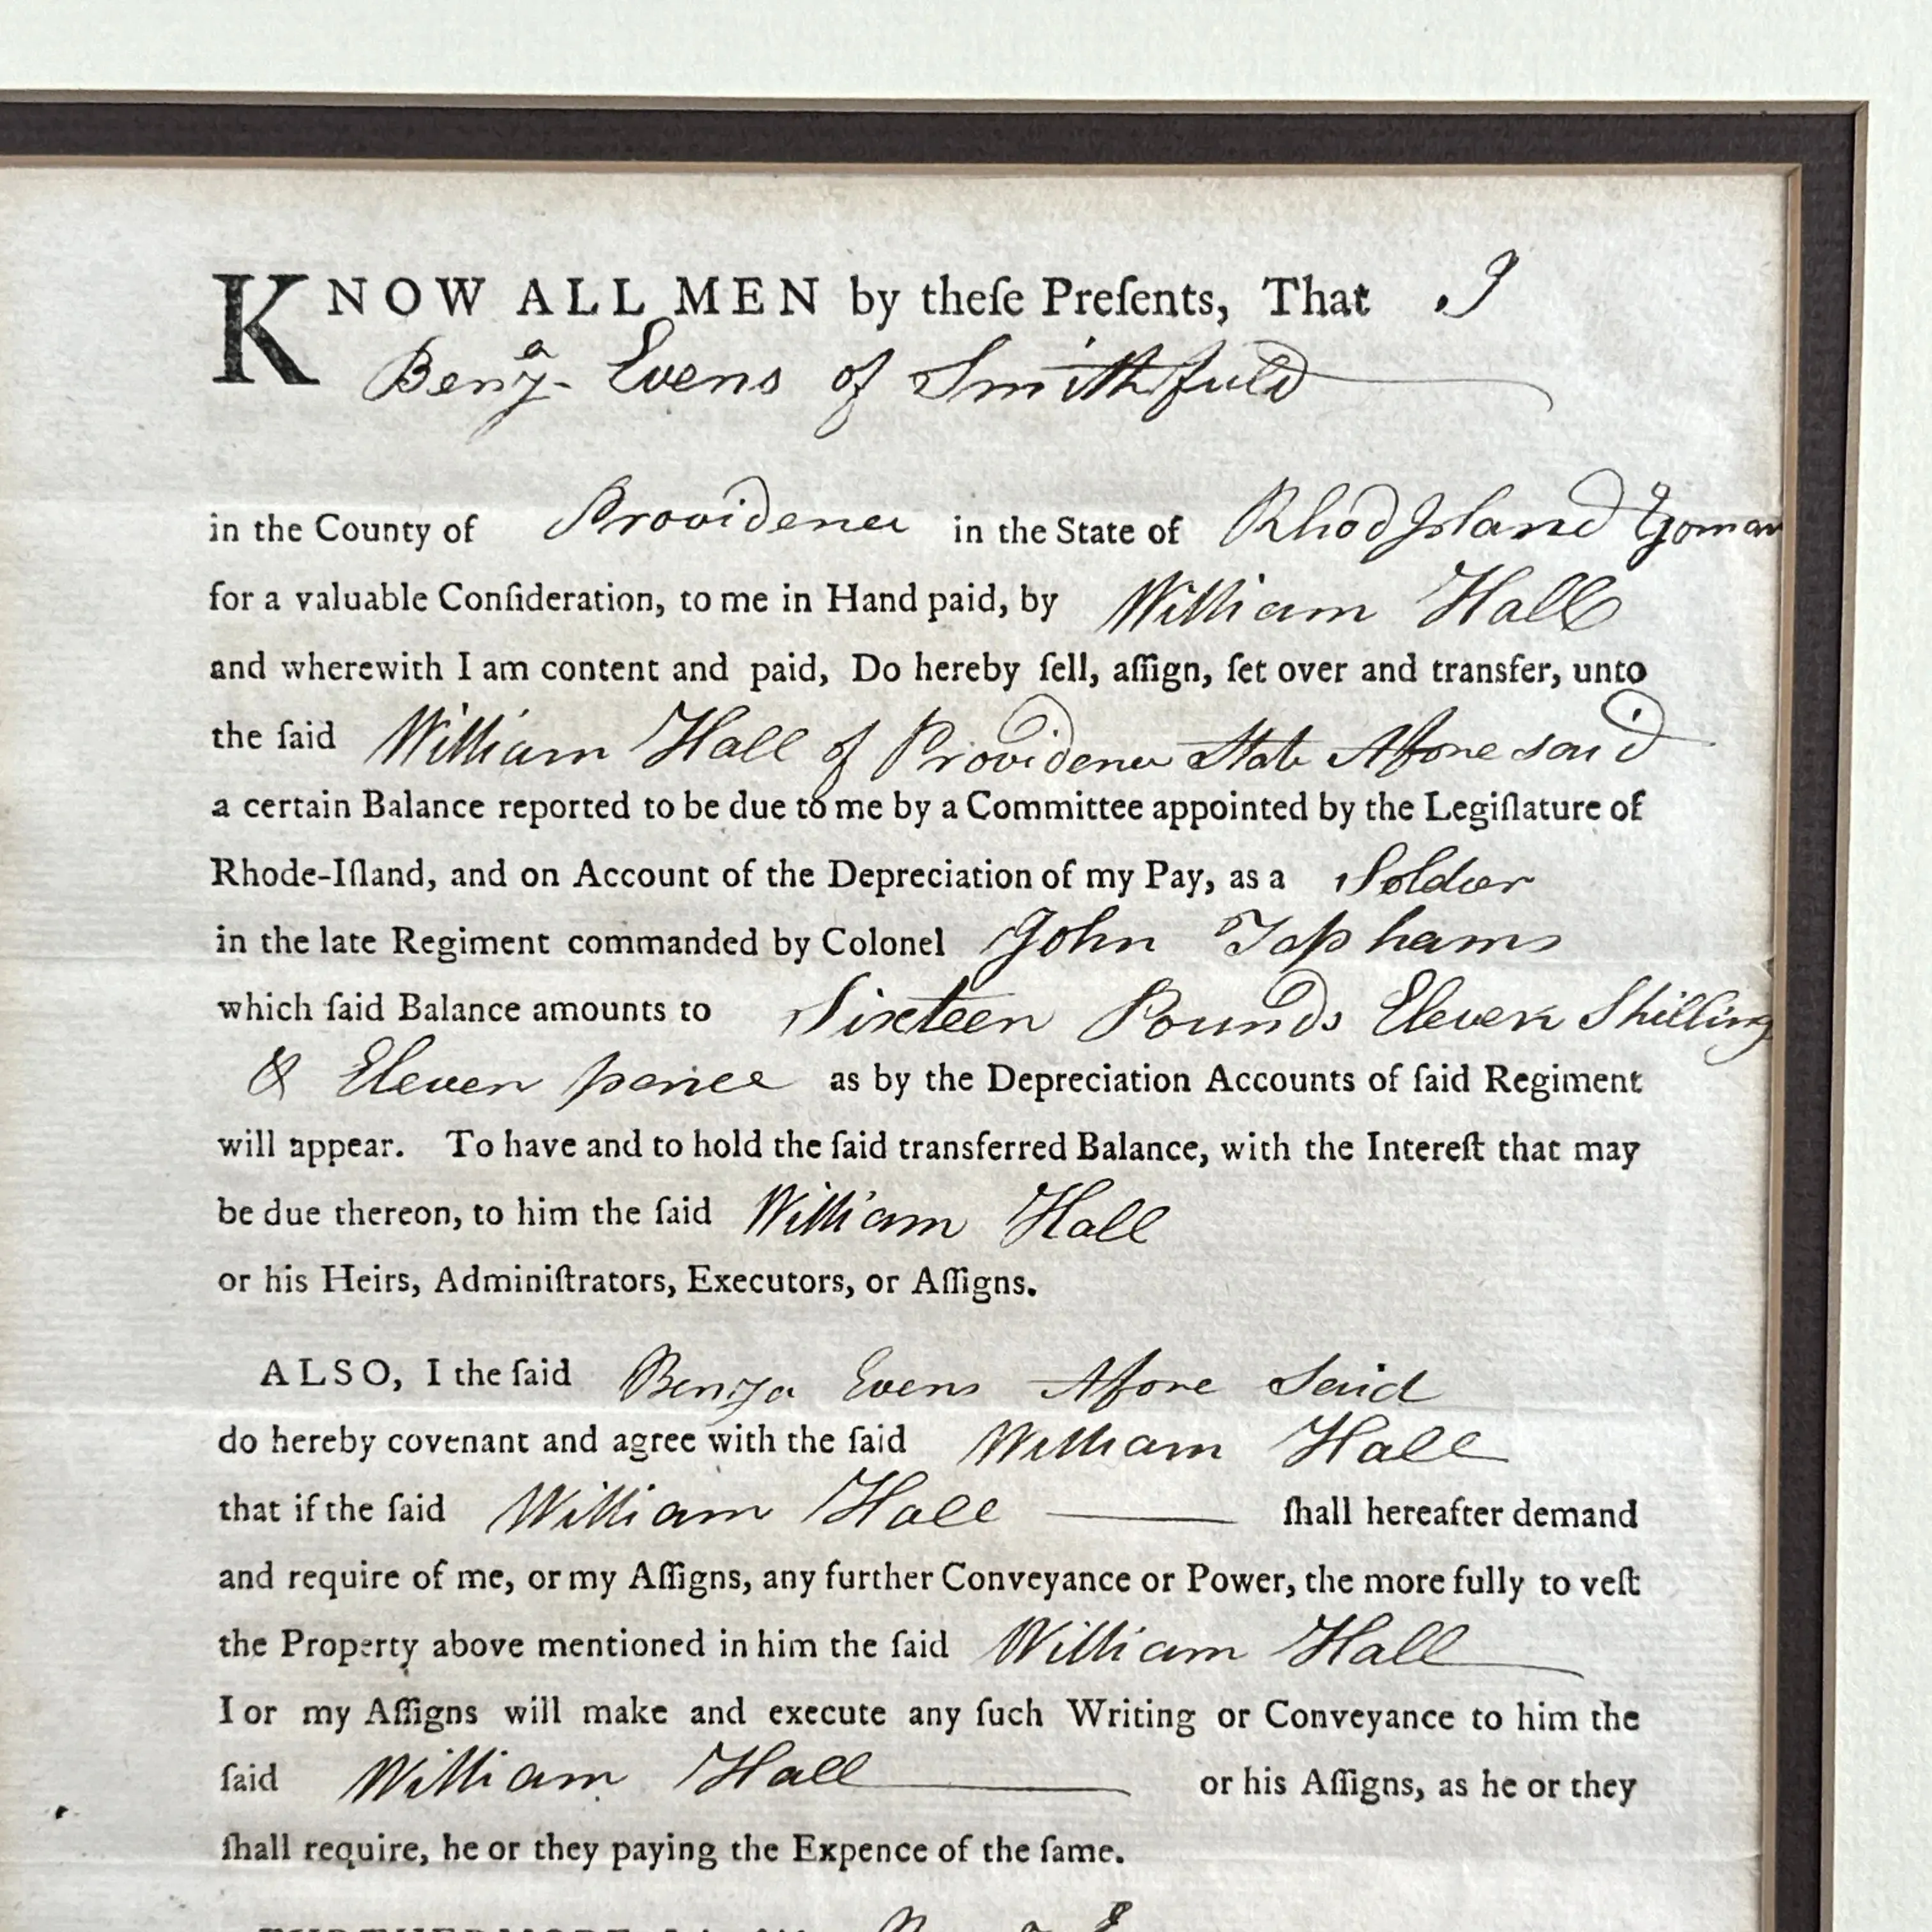 KNOW ALL MEN by theſe Preſents, That I
Benjᵃ Evens of Smithfield
in the County of Providence in the State of Rhod Island Yoman
for a valuable Conſideration, to me in Hand paid, by William Hall
and wherewith I am content and paid, Do hereby ſell, aſſign, ſet over and transfer, unto
the ſaid William Hall of Providence State Afore said
a certain Balance reported to be due to me by a Committee appointed by the Legiſlature of
Rhode-Iſland, and on Account of the Depreciation of my Pay, as a Soldier
in the late Regiment commanded by Colonel John Tophams
which ſaid Balance amounts to Sixteen Pounds Eleven Shilling
& Eleven pence as by the Depreciation Accounts of ſaid Regiment
will appear. To have and to hold the ſaid transferred Balance, with the Intereſt that may
be due thereon, to him the ſaid William Hall
or his Heirs, Adminiſtrators, Executors, or Aſſigns.
ALSO, I the ſaid Benja Evens Afore Said
do hereby covenant and agree with the ſaid William Hall
that if the ſaid William Hall ſhall hereafter demand
and require of me, or my Aſſigns, any further Conveyance or Power, the more fully to veſt
the Property above mentioned in him the ſaid William Hall
I or my Aſſigns will make and execute any ſuch Writing or Conveyance to him the
ſaid William Hall or his Aſſigns, as he or they
ſhall require, he or they paying the Expence of the ſame.